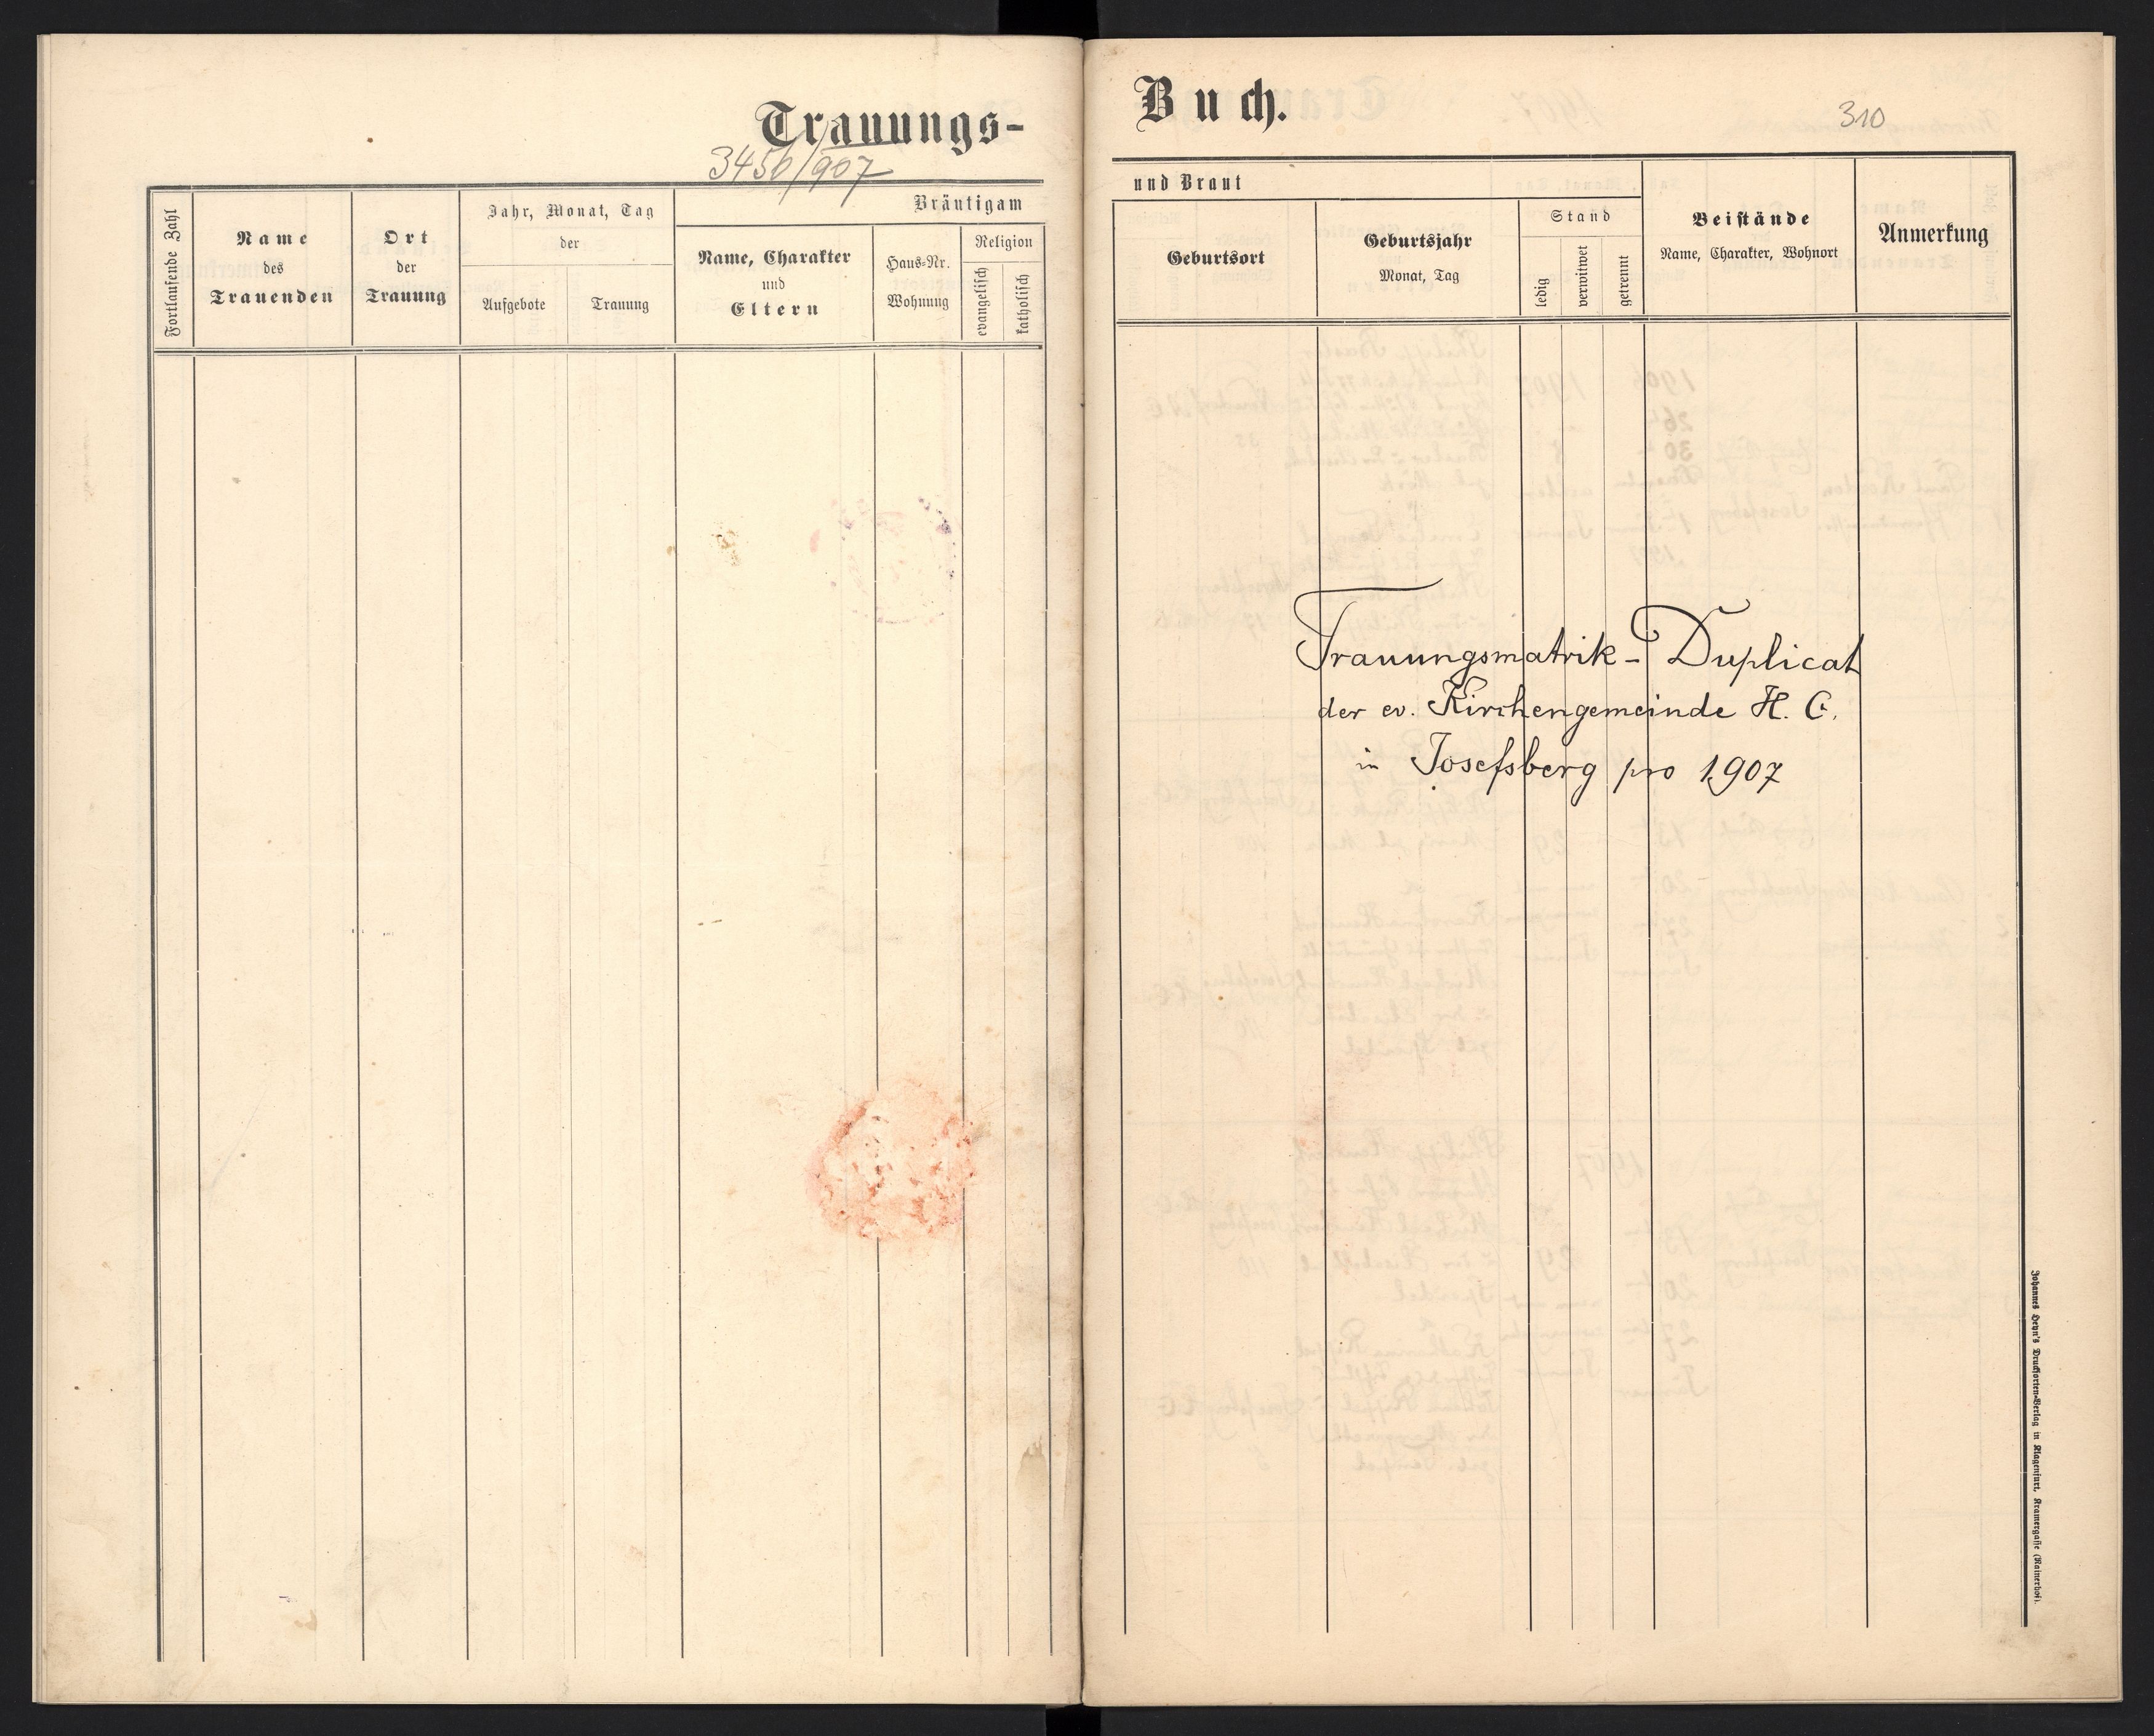 Trauungs-
3450/907
Fortlaufende Zahl
Name
des
Trauenden
Ort
der
Trauung
Jahr, Monat, Tag
der
Aufgebote
Trauung
Bräutigam
Name, Charakter
und
Eltern
Haus-Nr.
Wohnung
Religion
evangelisch
katholisch
Buch.
310
und Braut
Geburtsort
Geburtsjahr
Monat, Tag
Stand
ledig
verwitwet
getrennt
Beistände
Name, Charakter, Wohnort
Anmerkung
Trauungsmatrik-Duplicat
der ev. Kirchengemeinde H. C.
in Josefsberg pro 1907
Johannes Heyn's Drucksorten-Verlag in Klagenfurt, Kramergasse (Rainerhof).